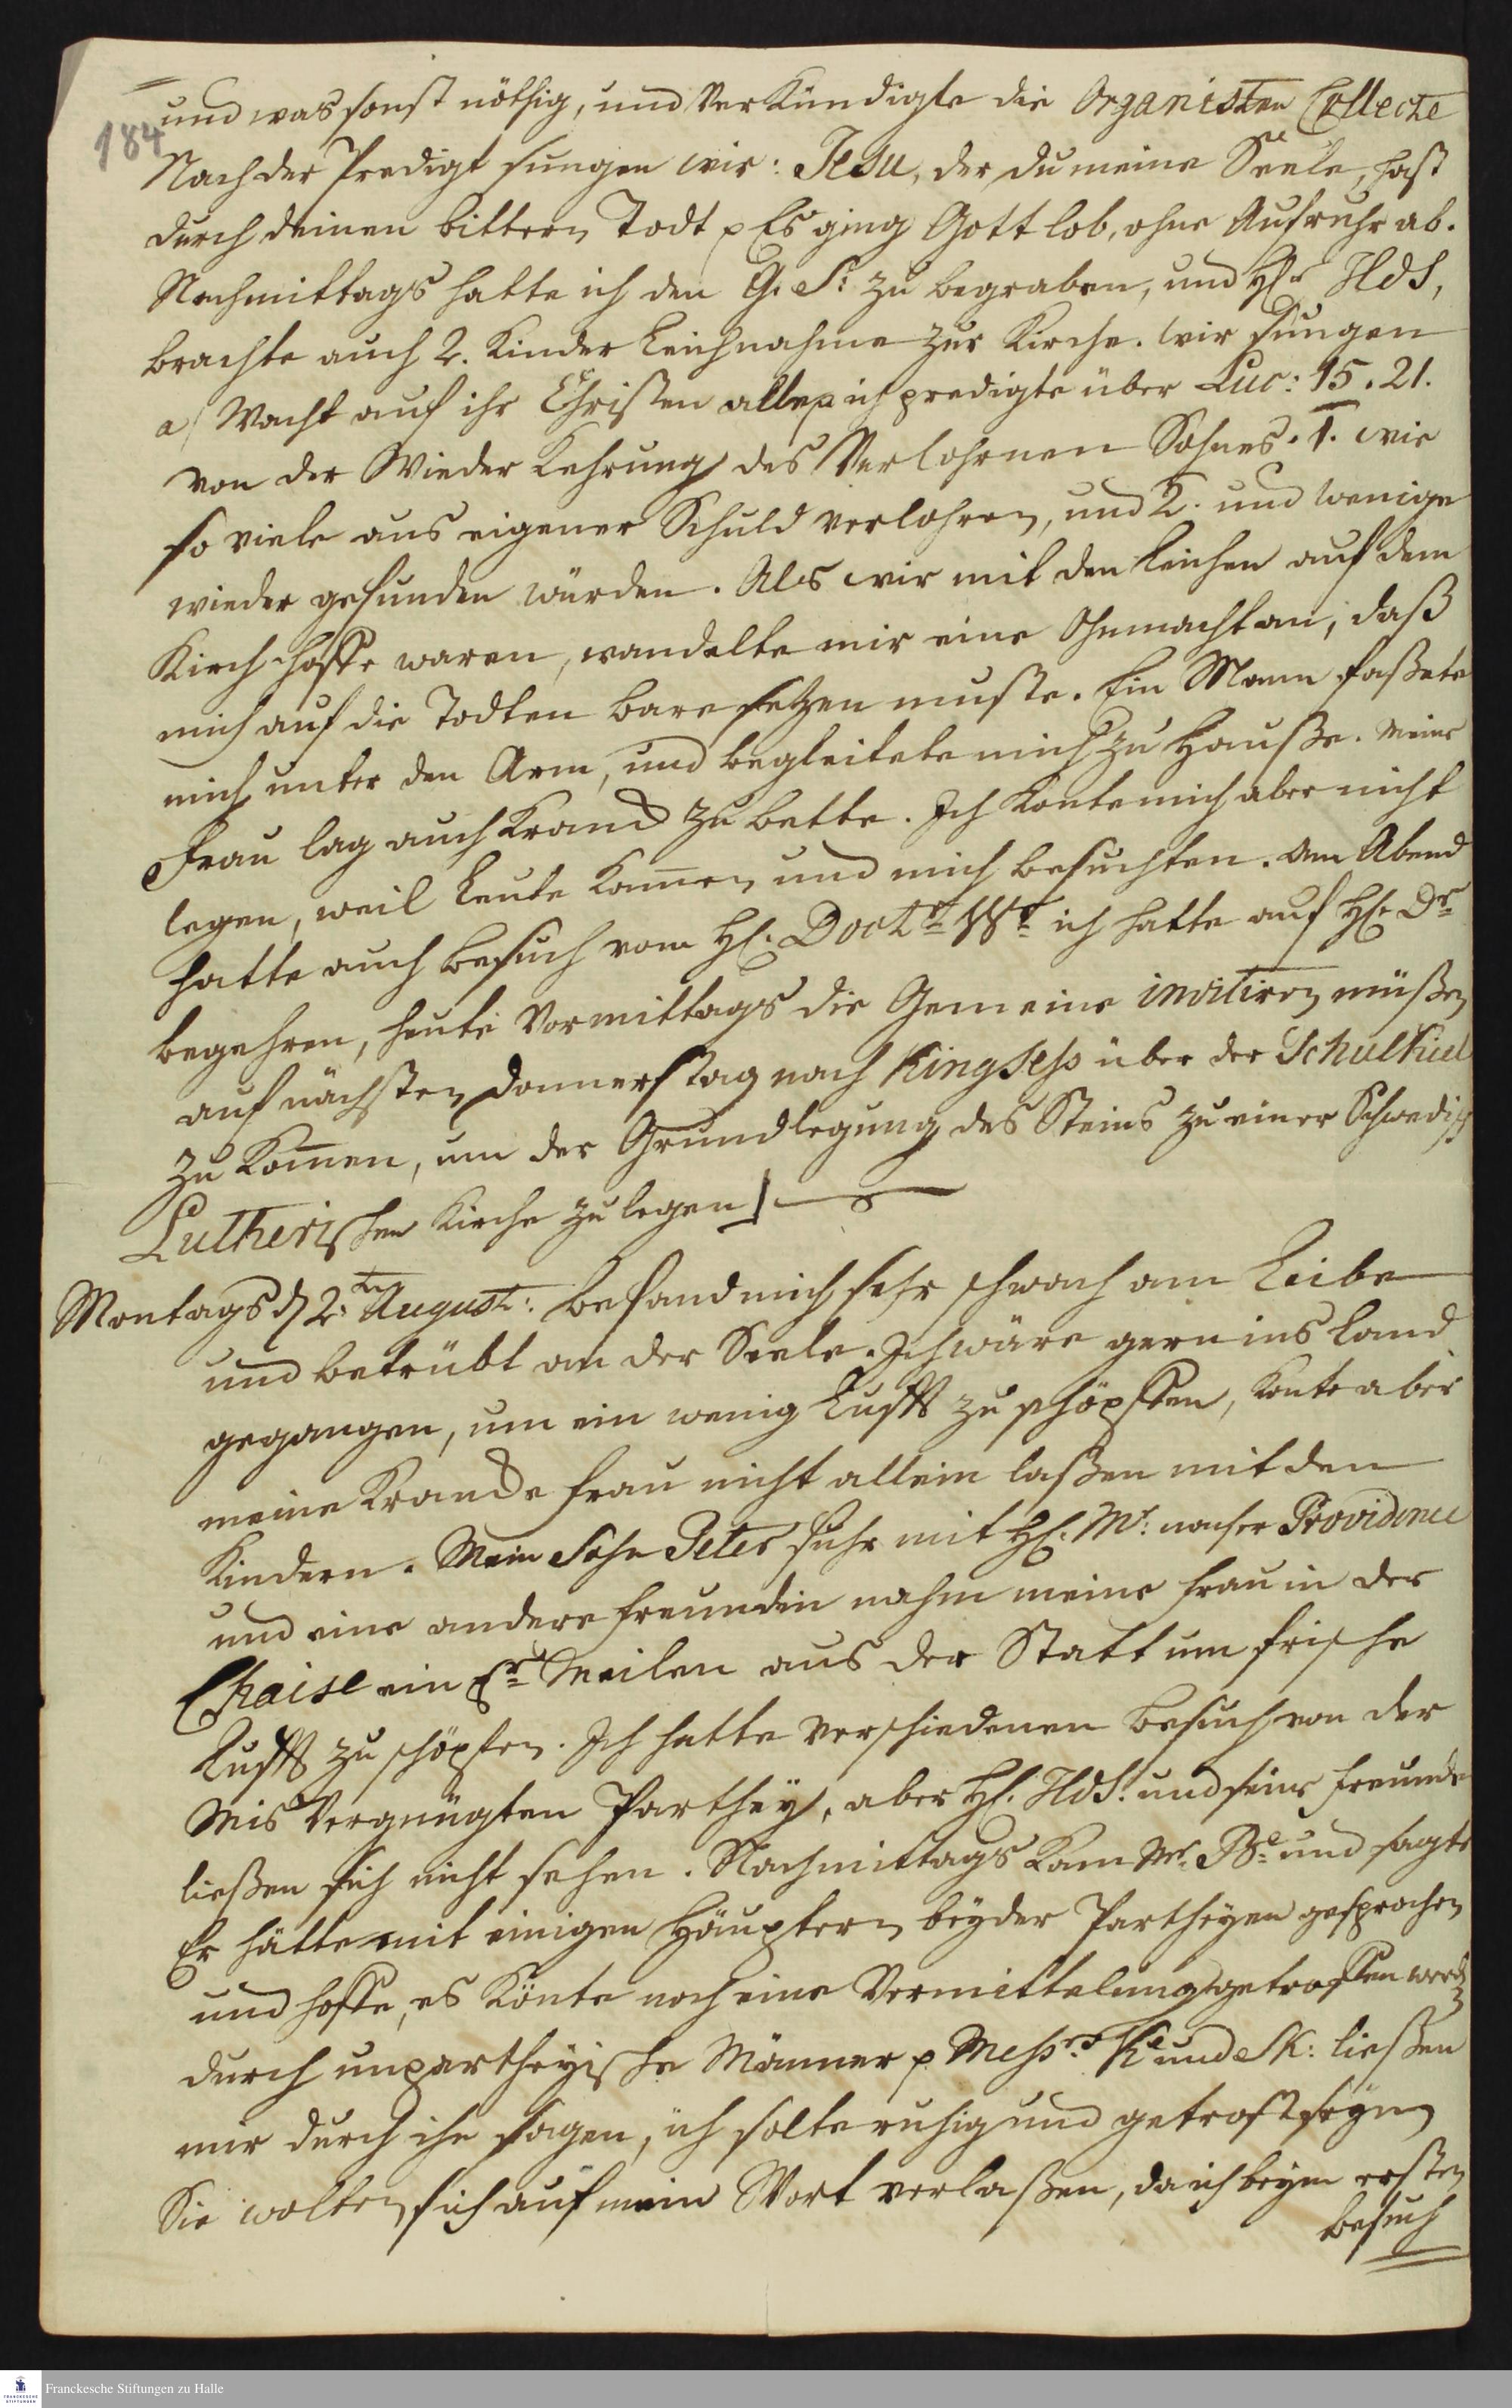 184
und was sonst nöthig, und verkündigte die Organisten Collecte
Nach der Predigt sungen wir: Jesu, der du meine Seele, hast
durch deinen bittern Todt p Es ging Gott lob, ohne Aufruhr ab.
Nachmittags hatte ich den G. S: zu begraben, und H. Hds,
brachte auch 2. Kinder Leichnahme zur Kirche. wir sungen
a/ Wacht auf ihr Christen alle p ich predigte über Luc: 15. 21.
von der Wieder Kehrung des Verlohrnen Sohnes. 1. wie
so viele aus eigener Schuld verlohren, und 2. und wenige
wieder gefunden würden. Als wir mit den Leichen auf dem
Kirch-hoffe waren, wandelte mir eine Ohnmacht an, daß
mich auf die Todten bare setzen muste. Ein Mann faßete
mich unter den Arm, und begleitete mich zu Hauße. meine
Frau lag auch Kranck zu bette. Ich konte mich aber nicht
legen, weil Leute kamen und mich besuchten. am Abend
hatte auch besuch vom H. Doctr Wr ich hatte auf H. Dr
begehren, heute Vormittags die Gemeine invitiren müßen
auf nächsten Donnerstag nach Kingsess über der Schulkiel
zu komen, um der Grundlegung des Steins zu einer Schwedisch
Lutherischen Kirche zu legen
Montags d 2ten August: befand mich sehr schwach am Leibe
und betrübt an der Seele. Ich wäre gern ins Land
gegangen, um ein wenig Lufft zu schöpffen, konte aber
meine Krancke Frau nicht allein laßen mit den
Kindern. Mein Sohn Peter fuhr mit H. Mr: naher Providence
und eine andere Freundin nahm meine Frau in der
Chaise ein Meilen aus der Statt um frische
Lufft zu schöpfen. Ich hatte verschiedenen besuch von der
Mis Vergnügten Parthey, aber H. Hds: und seine Freunde
ließen sich nicht sehen. Nachmittags kam Mr. und sagte
Er hätte mit einigen Häuptern beyder Partheyen gesprochen
und hoffe, es könte noch eine Vermittelung getroffen werd
durch unpartheyische Männer p Messrs Ke und SK: ließen
mir durch ihn sagen, ich solte ruhig und getrost seyn
Sie wolten sich auf mein Wort verlaßen, da ich beym ersten
besuch
Franckesche Stiftungen zu Halle